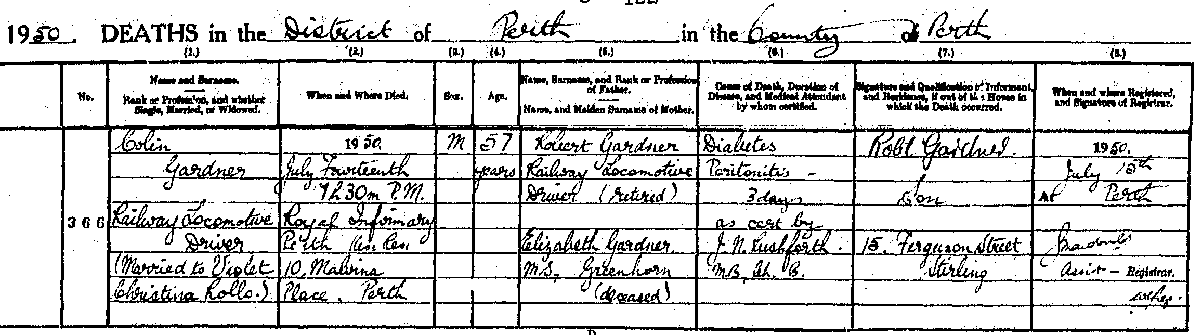 1950. DEATHS in the District of Perth in the County of Perth
(1.) (2.) (3.) (4.) (5.) (6.) (7.) (8.)
No.
Name and Surname.
Rank or Profession, and whether Single, Married, or Widowed.
When and Where Died.
Sex.
Age.
Name, Surname, and Rank or Profession of Father.
Name, and Maiden Surname of Mother.
Cause of Death, Duration of Disease, and Medical Attendant by whom certified.
Signature and Qualification of Informant, and Residence, if out of the House in which the Death occurred.
When and where Registered, and Signature of Registrar.
366
Colin
Gardner
Railway Locomotive
Driver
(Married to Violet
Christina Rollo.)
1950.
July Fourteenth
7h. 30m P.M.
Royal Infirmary
Perth
10, Malvina
Place, Perth
M
57
years
Robert Gardner
Railway Locomotive
Driver (retired)
Elizabeth Gardner
M.S. Greenhorn
(deceased)
Diabetes
Peritonitis -
3 days
as cert by
J. N. Rushforth.
M.B., Ch. B.
Robt. Gardner.
Son
15, Ferguson Street,
Stirling
1950.
July 15th
At Perth
Assist - Registrar.